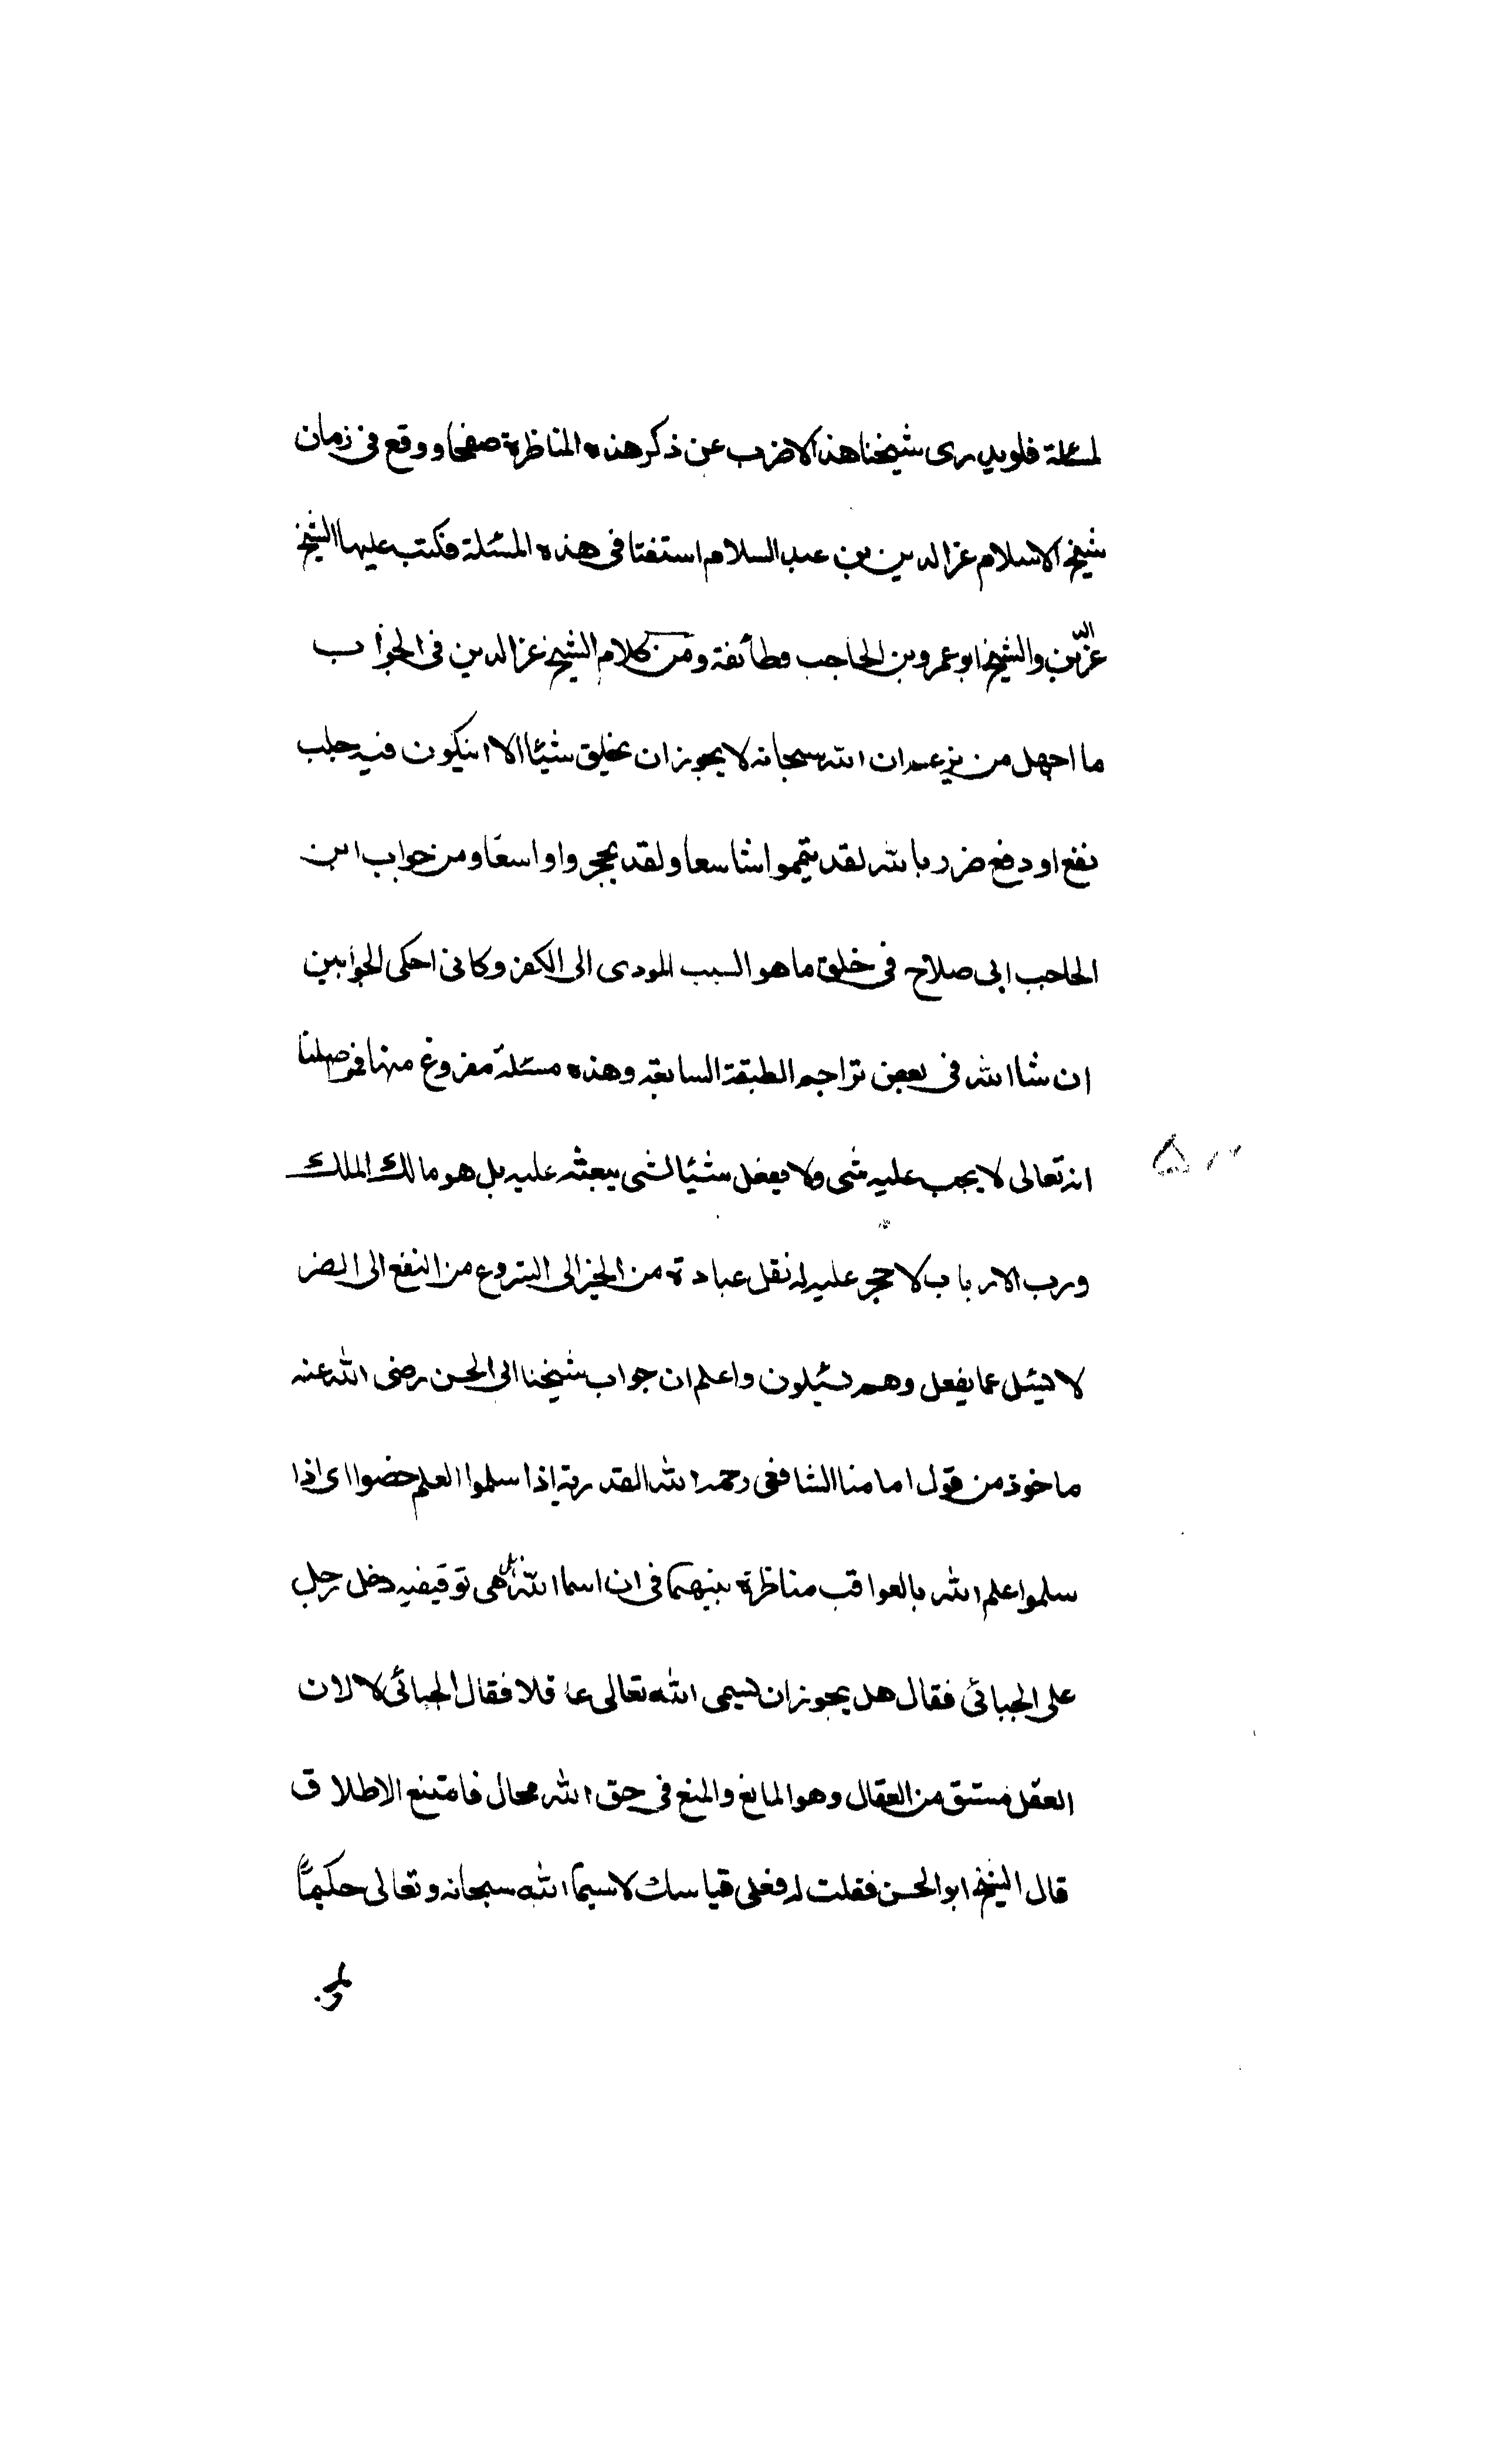 لمسئلة فلو يدرى شيخنا هذا لاضرب عن ذكر هذه المناظرة صفحا ووقع فى زمان
شيخ الاسلام عز الدين بن عبد السلام استفتا فى هذه المسئلة فكتب عليها الشيخ
عز الدين والشيخ ابو عمرو بن الحاجب وطائفة ومن كلام الشيخ عز الدين فى الجواب
ما اجهل من يزعم ان الله سبحانه لا يجوز ان يخلق شيئا الا انيكون فيه جلب
نفع او دفع ضرر بالله لقد يتمموا شاسعا ولقد بحجروا واسعا ومن جواب ابن
الحاجب اى صلاح فى خلق ما هو السبب المودى الى الكفر وكانى احكى الجوابين
ان شا الله فى بعض تراجم الطبقة السابعة وهذه مسئلة مفروغ منها فمن اصلنا
انه تعالى لا يجب عليه شى ولا يفعل شيئا لشى يبعثه عليه بل هو مالك الملك
ورب الارباب لا حجر عليه له نقل عباده من الخير الى الشر ومن النفع الى الضر
لا يسئل عما يفعل وهم يسئلون واعلم ان جواب شيخنا ابى الحسن رضى الله عنه
ماخوذ من قول امامنا الشافعى رحمه الله القدرية اذا سلموا العلم خصموا اى اذا
سلموا علم الله بالعواقب مناظرة بينهما فى ان اسما الله هل هى توقيفيه دخل رجل
على الجبائى فقال هل يجوز ان يسمى الله تعالى عاقلا فقال الجبائى لا لان
العقل مشتق من العقال وهو المانع والمنع فى حق الله محال فامتنع الاطلاق
قال الشيخ ابو الحسن فقلت له فعلى قياسك لا سيما الله سبحانه وتعالى حكيما